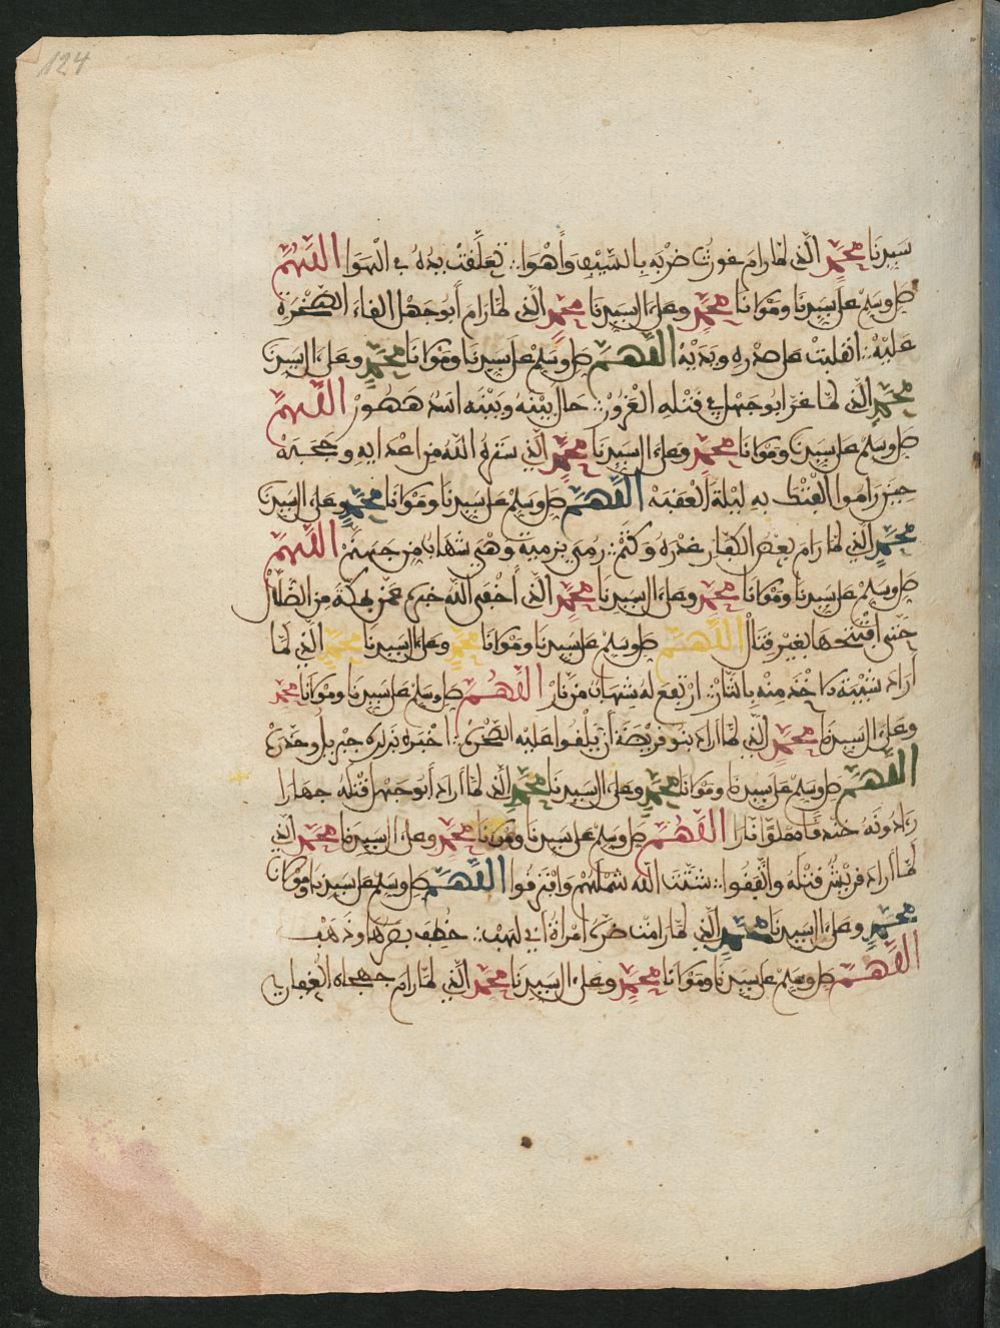 124
سيدنا محمد الذي لما رام غورث ضربه بالسيف وأهوا تعلقت يده في الهوا اللهم
صل وسلم على سيدنا ومولانا محمد وعلى ءال سيدنا محمد الذي لما رام أبو جهل القاء الصخرة
عليه انقلبت على صدره ويديه اللهم صل وسلم على سيدنا ومولانا محمد وعلى ءال سيدنا
محمد الذي لما عزا ابو جهل في قتله الغرور حال بينه وبينه اسد هصور اللهم
صل وسلم على سيدنا ومولانا محمد وعلى ءال سيدنا محمد الذي ستره الله من اعدايه وحجبه
حين راموا الفتك به ليلة العقبة اللهم صل وسلم على سيدنا ومولانا محمد وعلى ءال سيدنا
محمد الذي لما رام بعض الكفار غدره وكتم رمي برمية وهي شهاب من جهنم اللهم
صل وسلم على سيدنا ومولانا محمد وعلى ءال سيدنا محمد الذي أخفى الله خبره عمن بمكة من الضلال
حتى افتتحها بغير قتال اللهم صل وسلم على سيدنا ومولانا محمد وعلى ءال سيدنا محمد الذي لما
أراد شيبة الاخذ منه بالثار ارتفع له شهاب من نار اللهم صل وسلم على سيدنا ومولانا محمد
وعلى ءال سيدنا محمد الذي لما أراد بنو قريضة أن يلقوا عليه الصخر اخبره بذلك جبريل وحذر
اللهم صل وسلم على سيدنا ومولانا محمد وعلى ءال سيدنا محمد الذي لما أراد أبو جهل قتله جهارا
رأ دونه خندقا نارا اللهم صل وسلم على سيدنا ومولانا محمد وعلى ءال سيدنا محمد الذي
لما أراد قريش قتله واتفقوا شتت الله شملهم وافترقوا اللهم صل وسلم على سيدنا ومولانا
محمد وعلى ءال سيدنا محمد الذي لما رامت ضره امرأة أبي لهب خطف بصرها وذهب
اللهم صل وسلم على سيدنا ومولانا محمد وعلى ءال سيدنا محمد الذي لما رام جهجاه الغفاري